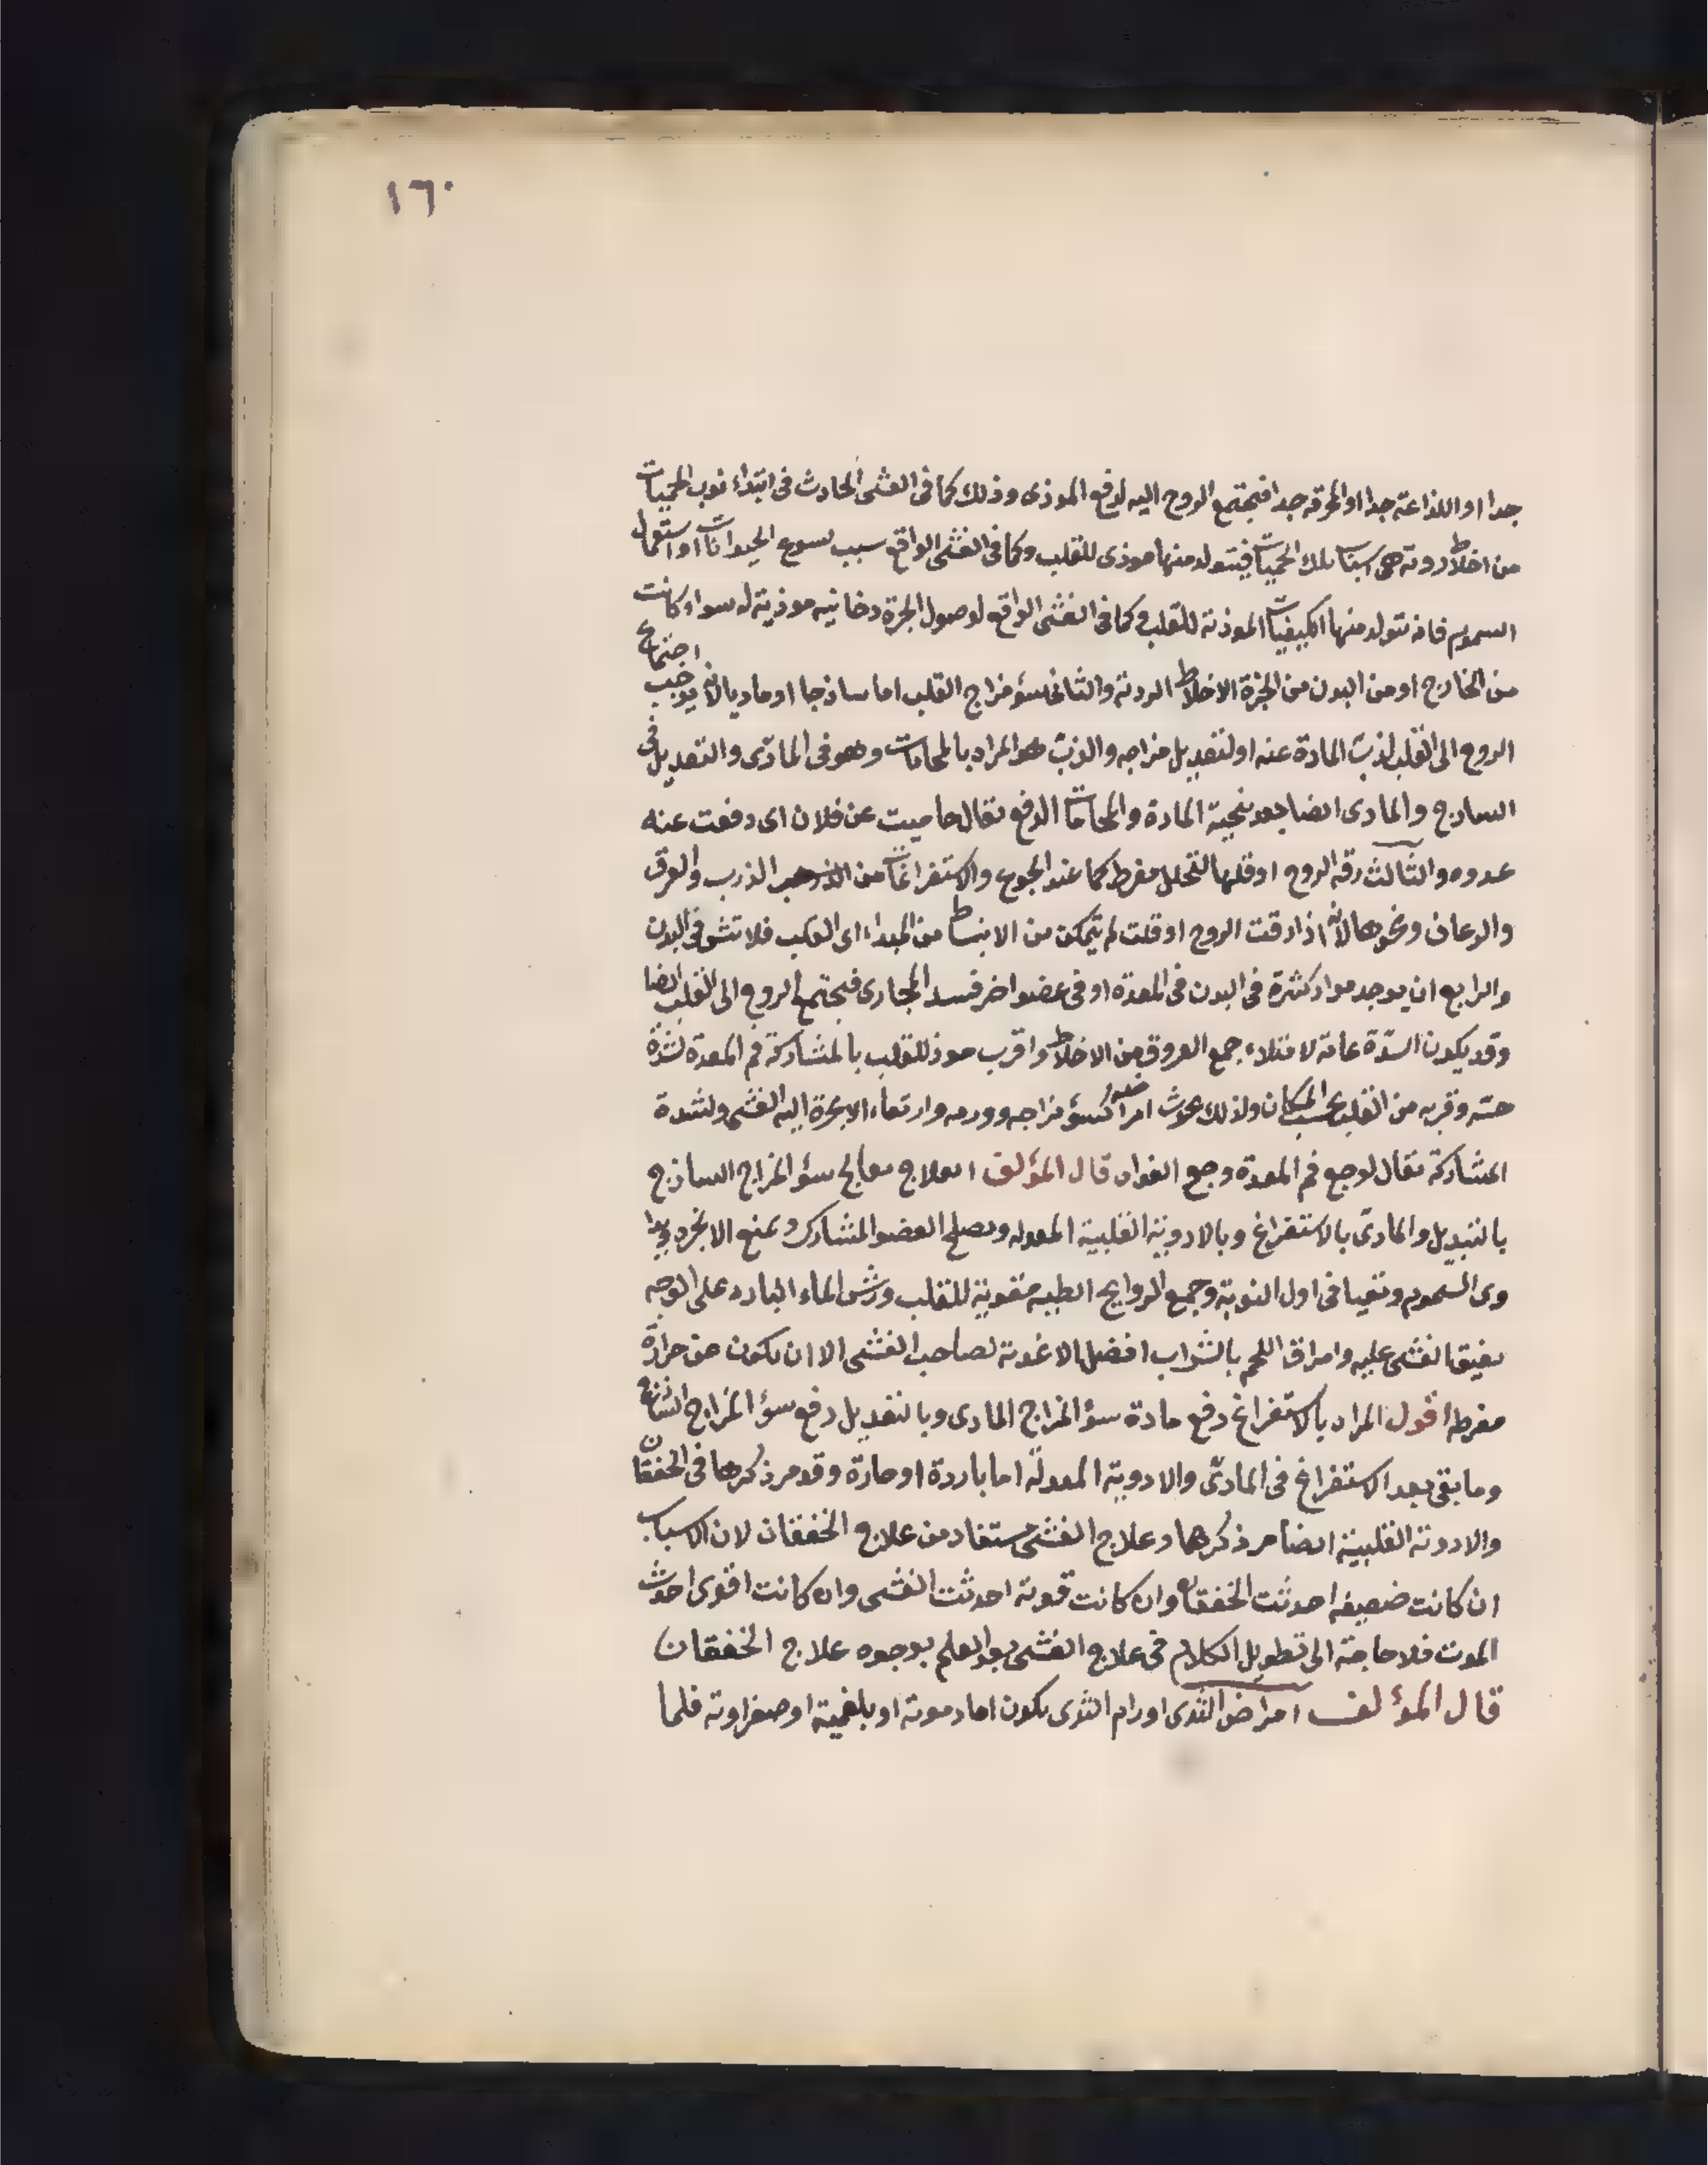 ١٦٠
جدا او اللذاعة جدا او المحرقة جدا فيجتمع الروح اليه لدفع الموذى وذلك كما فى الغشى الحادث فى ابتداء نوب الحميات
من اخلاط ردية هى اسباب تلك الحميات فيتولد منها موذى للقلب وكما فى الغشى الواقع بسبب لسوع الحيوانات او استعمال
السموم فانه تتولد منها الكيفيات الموذية للقلب وكما فى الغشى الواقع لوصول ابخرة دخانيه موذية له سوا كانت
من الخارج او من البدن من ابخرة الاخلاط الردية والثانى سؤ مزاج القلب اما ساذجا او ماديا لانه يوجب اجتماع
الروح الى القلب لذب المادة عنه او لتعديل مزاجه والذب هو المراد بالمحامات وهو فى المادّى والتعديل فى
الساذج والمادى ايضا بعد تنحية المادة والمحاماة الدفع يقال حاميت عن فلان اى دفعت عنه
عدوه والثالث رقة الروح او قلتها لتحلل مفرط كما عند الجوع والاستفراغات من الذرب والعرق
والرعاف ونحوها لانه اذا رقت الروح او قلت لم تتمكن من الانبساط من المبداء اى القلب فلا تنشو فى البدن
والرابع ان يوجد مواد كثيرة فى البدن فى المعدة او فى عضو اخر فسد المجارى فيجتمع الروح الى القلب ايضا
وقد يكون السدّة عامة لامتلاء جميع العروق من الاخلاط واقرب موذ للقلب بالمشاركة فم المعدة لشدّة
حسّه وقربه من القلب بحسب المكان ولذلك يحدث امراضه كسؤ مزاجه وورمه وارتقاء الابخرة اليه الغشى ولشدة
المشاركة يقال لوجع فم المعدة وجع الفواد قال المؤلف العلاج يعالج سؤ المزاج الساذج
بالتبديل والمادىّ بالاستفراغ وبالادوية القلبية المعدله ويصلح العضو المشارك ويمنع الابخره ويدا
وى السموم وتقيا فى اول النوبة وجميع الروايح الطيبه مقوية للقلب ورش الماء البارد على الوجه
يفيق الغشى عليه وامراق اللحم بالشراب افضل الاغذية لصاحب الغشى الا ان يكون من حرارة
مفرطه اقول المراد بالاستفراغ دفع مادة سؤ المزاج المادى وبالتعديل دفع سؤ المزاج الساذج
وما بقى بعد الاستفراغ فى المادىّ والادوية المعدلة اما باردة او حارة وقد مر ذكرها فى الخفقان
والادوية القلبية ايضا مر ذكرها وعلاج الغشى مستفاد من علاج الخفقان لان الاسباب
ان كانت ضعيفه احدثت الخفقان وان كانت قوية احدثت الغشى وان كانت اقوى احدث
الموت فلا حاجة الى تطويل الكلام فى علاج الغشى بعد العلم بوجوه علاج الخفقان
قال المؤلف امراض الثدى اورام الثدى يكون اما دموية او بلغمية او صفراوية فلما